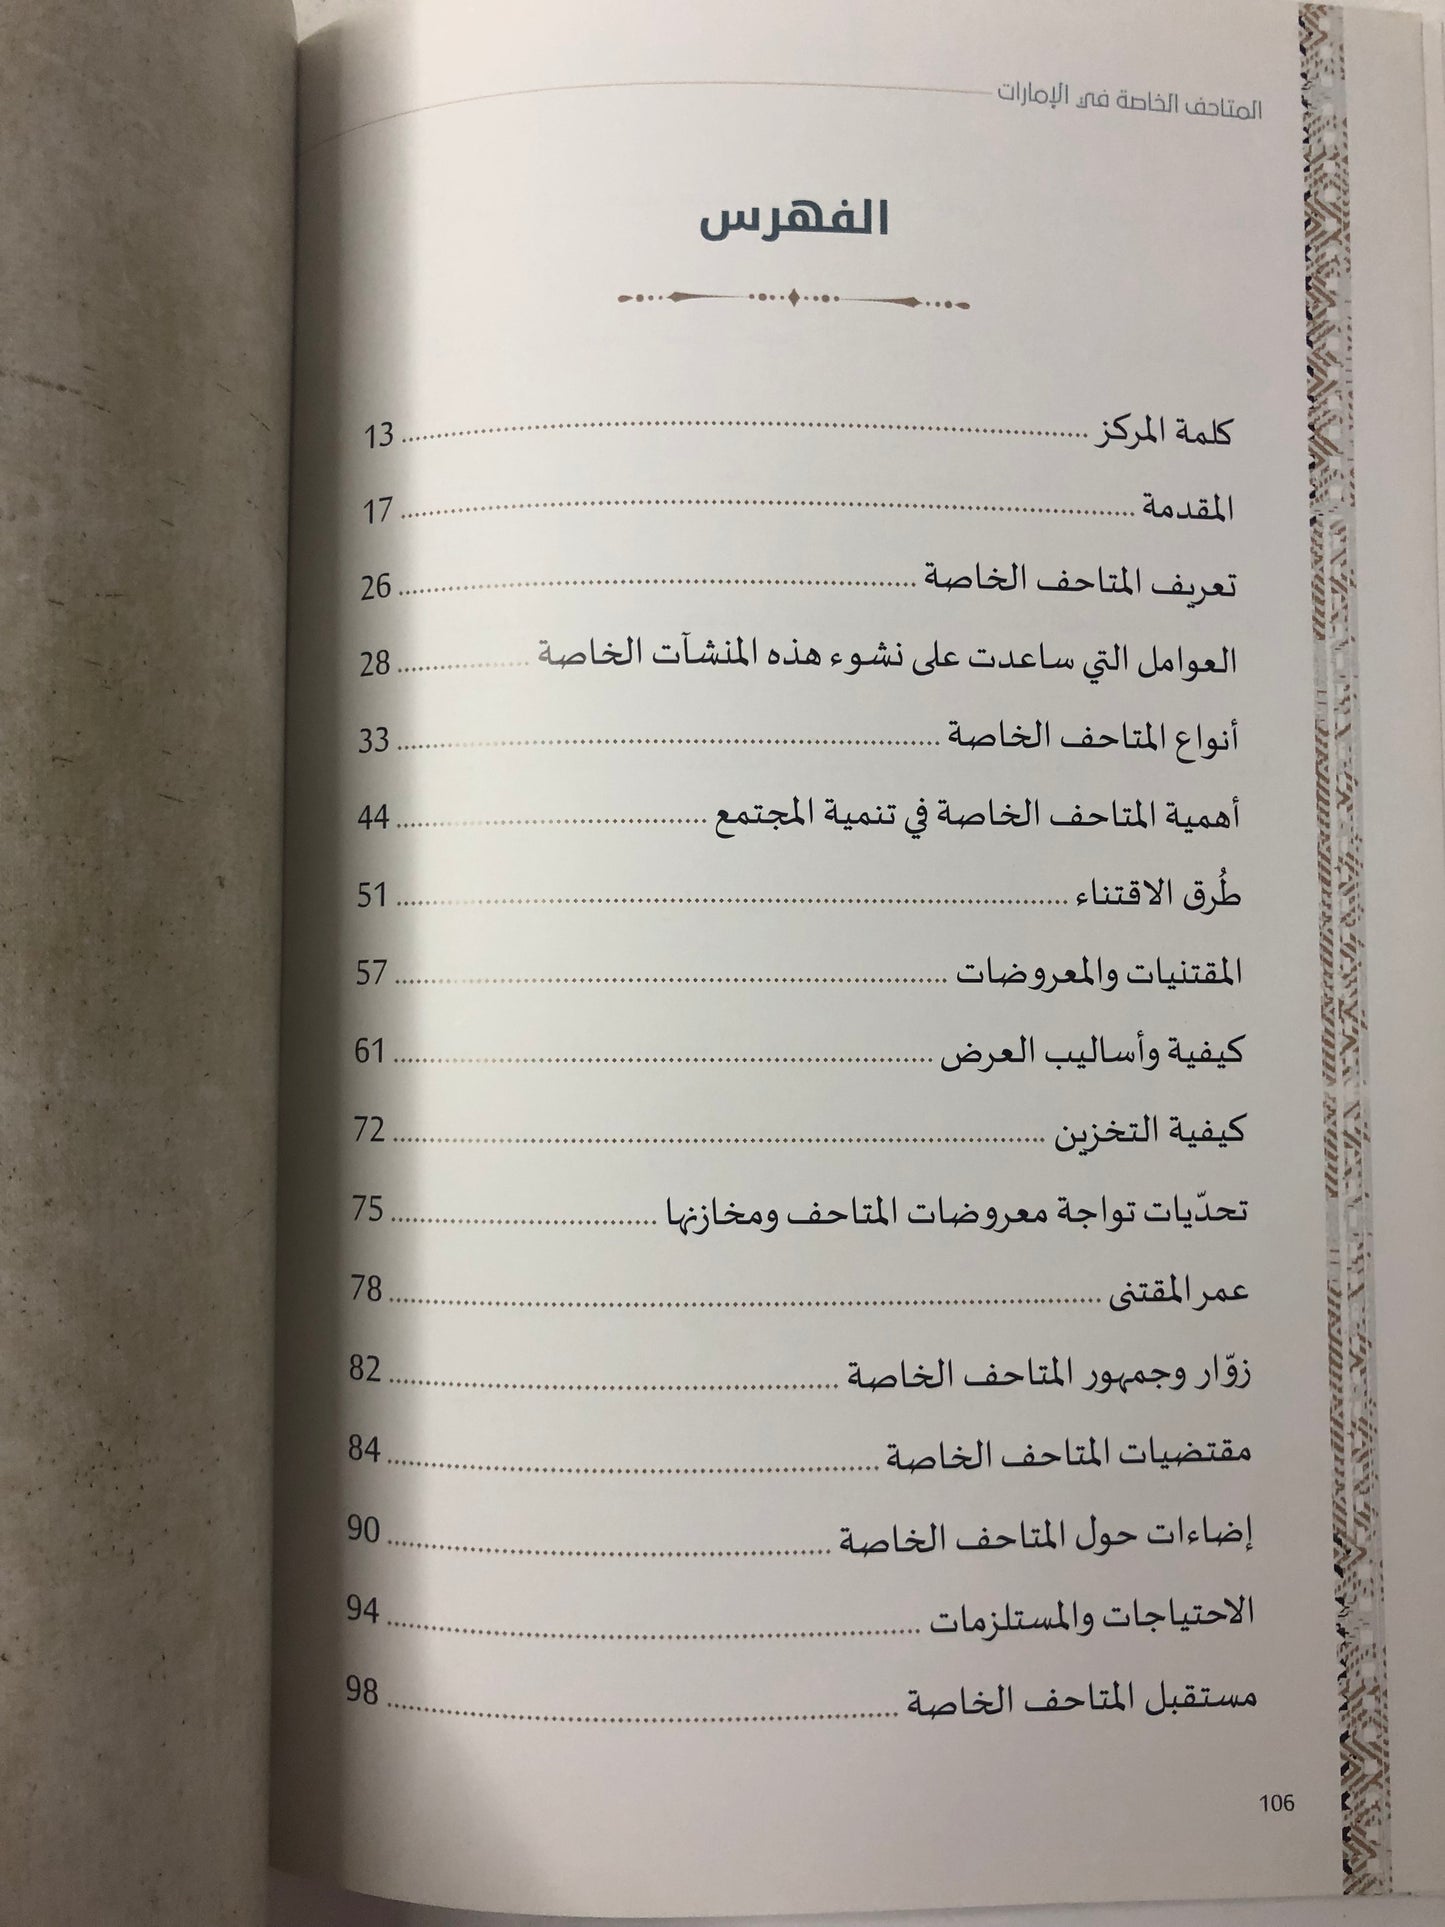 المتاحف الخاصة في الإمارات
الفهرس
كلمة المركز 13
المقدمة 17
تعريف المتاحف الخاصة 26
العوامل التي ساعدت على نشوء هذه المنشآت الخاصة 28
أنواع المتاحف الخاصة 33
أهمية المتاحف الخاصة في تنمية المجتمع 44
طُرق الاقتناء 51
المقتنيات والمعروضات 57
كيفية وأساليب العرض 61
كيفية التخزين 72
تحدّيات تواجة معروضات المتاحف ومخازنها 75
عمر المقتنى 78
زوّار وجمهور المتاحف الخاصة 82
مقتضيات المتاحف الخاصة 84
إضاءات حول المتاحف الخاصة 90
الاحتياجات والمستلزمات 94
مستقبل المتاحف الخاصة 98
106